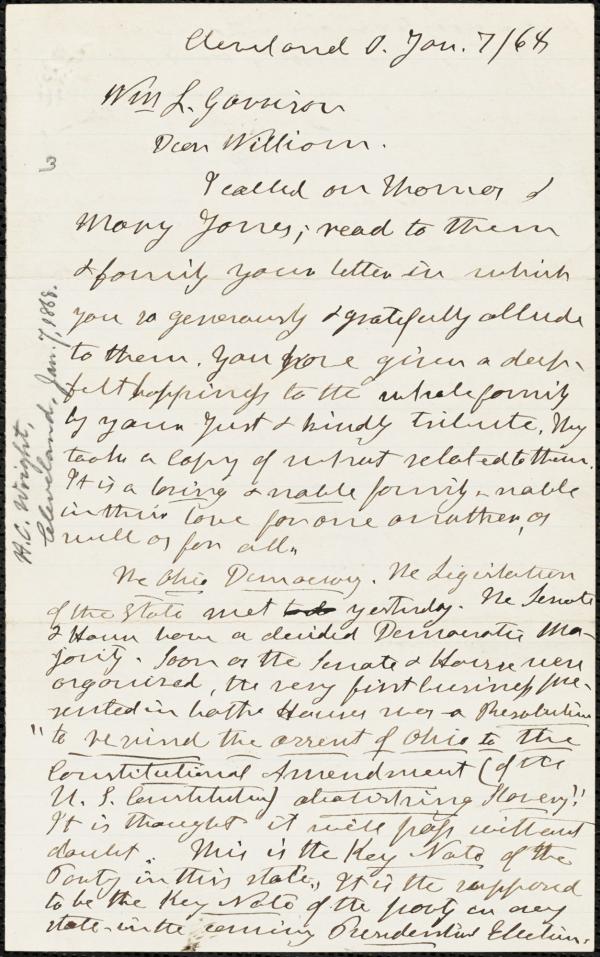 Cleveland O. Jan. 7/68
Wm L. Garrison
Dear William.
I called on Thomas &
Mary Jones, read to them
& family your letter in which
you so generously & gratefully allude
to them. You have given a deep-
felt happiness to the whole family
by your just & kindly tribute. They
took a copy of what related to them.
It is a loving & noble family - noble
in their love for one another, as
well as for all.
The Ohio Democracy. The Legislature
of the State met yesterday. The Senate
& House have a decided Democratic Ma-
jority. Soon as the Senate & House were
organised, the very first business pre-
sented in both Houses was a Resolution
"to rescind the assent of Ohio to the
Constitutional Amendment (of the
U. S. Constitution) abolishing Slavery"!
It is thought it will pass without
doubt. This is the Key Note of the
Party in this state. It is the supposed
to be the Key Note of the party in every
state - in the coming Presidential Election.
H.C. Wright,
Cleveland, Jan. 7, 1868.
3